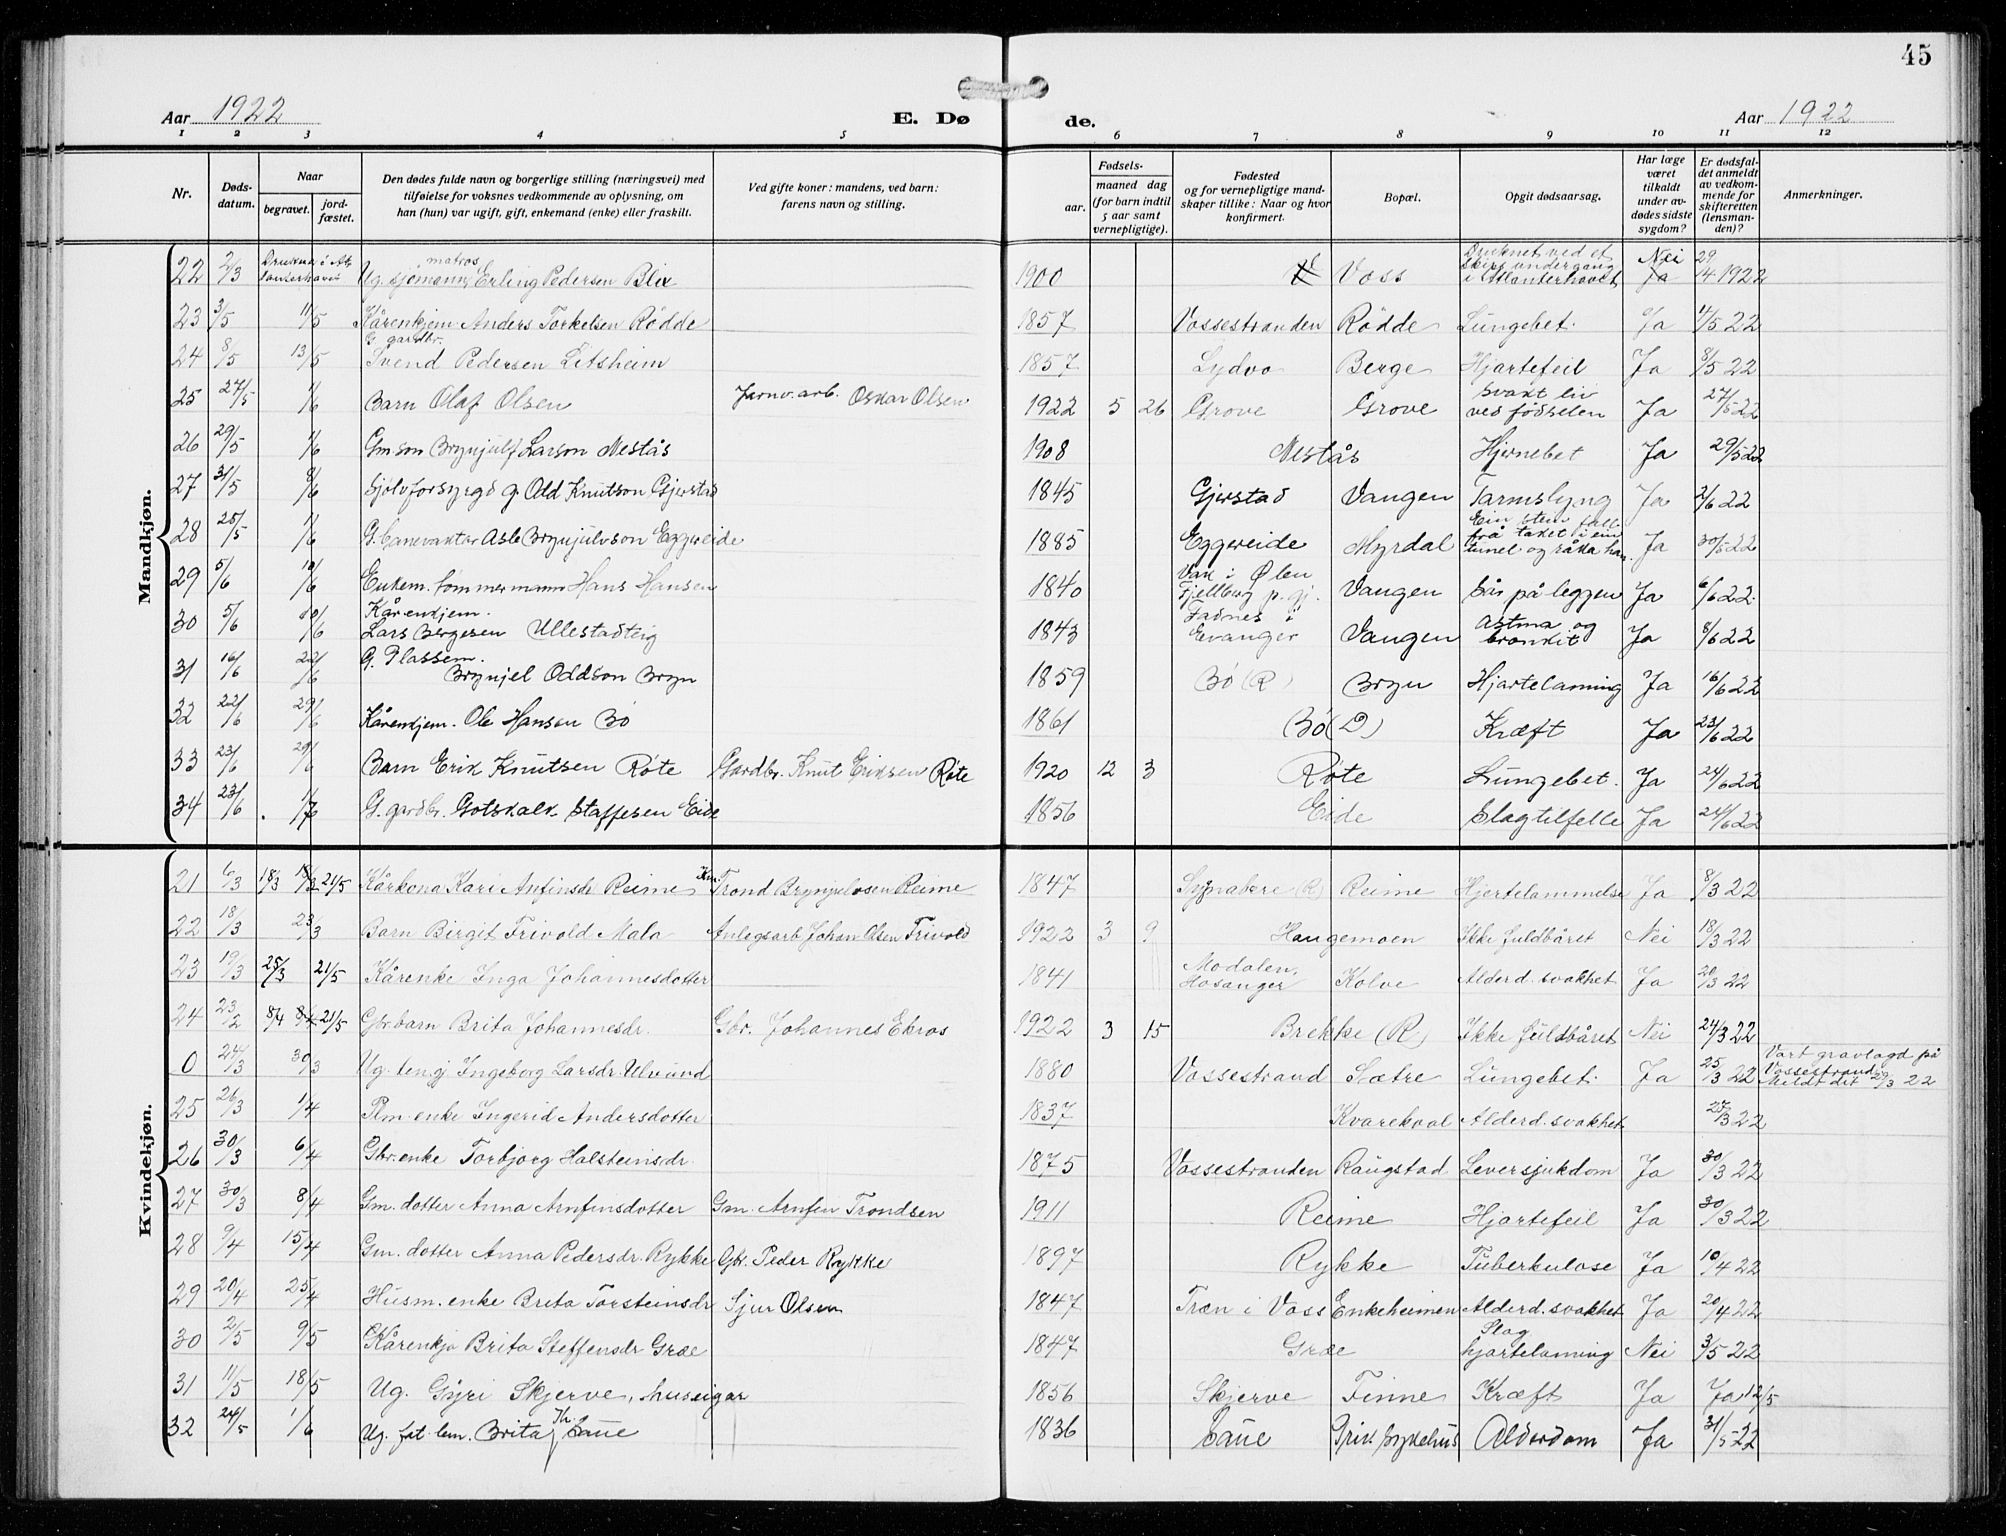 45
Aar 1922 E. Dø de. Aar 1922
1 2 3 4 5 6 7 8 9 10 11 12
Nr. Døds-datum. Naar begravet. jord-fæstet. Den dødes fulde navn og borgerlige stilling (næringsvei) med tilføielse for voksnes vedkommende av oplysning, om han (hun) var ugift, gift, enkemand (enke) eller fraskilt. Ved gifte koner: mandens, ved barn: farens navn og stilling. Fødsels- aar. maaned dag (for barn indtil 5 aar samt vernepligtige). Fødested og for vernepligtige mandskaper tillike: Naar og hvor konfirmert. Bopæl. Opgit dødsaarsag. Har læge været tilkaldt under avdødes sidste sygdom? Er dødsfaldet anmeldt av vedkommende for skifteretten (lensmanden)? Anmerkninger.
Mandkjøn.
22 2/3 Druknet i Atlanterhavet Ug. sjømann matros Erling Pedersen Blix 1900 Voss Druknet ved et skibs undergang i Atlanterhavet Nei Ja 29/4 1922
23 3/5 11/5 Kårenkjem Anders Torkelsen Rødde 1857 Vossestranden Rødde Lungebet. Ja 4/5 22
24 8/5 13/5 G gardbr. Svend Pedersen Litsheim 1857 Lydvo Berge Hjartefeil Ja 8/5 22
25 27/5 1/6 Barn Olaf Olsen Jarnv. arb. Oskar Olsen 1922 5 26 Grove Grove Svakt liv ved fødselen Ja 27/5 22
26 29/5 1/6 Gm. son Brynjulf Larson Nestås 1908 Nestås Hjernebet Ja 29/5 22
27 31/5 8/6 Sjølvforsyrgd g. Odd Knutson Gjerstad 1845 Gjerstad Vangen Tarmslyng Ja 2/6 22
28 25/5 1/6 G. banevaktar Asle Brynjulvson Eggereide 1885 Eggereide Myrdal Ein stein fall frå taket i ein tunel og råka han Ja 30/5 22
29 5/6 10/6 Enkem. tømmermann Hans Hansen 1840 Vak i Ølen Fjellberg p. gj. Vangen Sår på leggen Ja 6/6 22
30 5/6 10/6 Kårenkjem. Lars Bergesen Ullestadteig 1843 Fadnes i Evanger Vangen Astma og bronkit Ja 8/6 22
31 16/6 22/6 G. Plassem. Brynjel Oddson Bryn 1859 Bø (R) Bryn Hjartelaming Ja 16/6 22
32 22/6 29/6 Kårenkjem. Ole Hansen Bø 1861 Bø (D) Kræft Ja 23/6 22
33 23/6 29/6 Barn Erik Knutsen Røte Gardbr. Knut Eriksen Røte 1920 12 3 Røte Lungebet. Ja 24/6 22
34 23/6 1/7 G. gardbr. Gotskalk Staffesen Eide 1856 Eide Slagtilfelle Ja 24/6 22
Kvindekjøn.
21 6/3 18/3 18/3 21/5 Kårkona Kari Anfinsdr Reime Km. Trond Brynjulvsen Reime 1847 Reime Hjertelammelse Ja 8/3 22
22 18/3 23/3 Barn Birgit Trivold Mala Anlegsarb Johan Olsen Trivold 1922 3 9 Haugemoen Ikke fuldbåret Nei 18/3 22
23 19/3 25/3 21/5 Kårenke Inga Johannesdotter 1841 Modalen, Hosanger Kolve Alderd. svakhet Ja 20/3 22
24 23/2 8/4 8/4 21/5 Gbr. barn Brita Johannesdr. Gbr. Johannes Ekros 1922 3 15 Brekke (R) Ikke fuldbåret Nei 24/3 22
0 24/3 30/3 Ug. ten. gj Ingeborg Larsdr. Ulvund 1880 Vossestrand Sætre Lungebet. Ja 25/3 22 Vart gravlagd på Vossestrand. Meldt dit 29/3 22
25 26/3 1/4 Plm. enke Ingerid Andersdotter 1837 Kvarekval Alderd. svakhet 27/3 22
26 30/3 6/4 Gbr. enke Torbjorg Halsteinsdr. 1875 Vossestranden Raugstad Leversjukdom Ja 30/3 22
27 30/3 8/4 Gm. dotter Anna Arnfinsdotter Gm. Arnfin Trondsen 1911 Reime Hjartefeil Ja 30/3 22
28 9/4 15/4 Gm. dotter Anna Pedersdr. Rykke Gbr. Peder Rykke 1897 Rykke Tuberkulose Ja 10/4 22
29 20/4 25/4 Husm. enke Brita Torsteinsdr Sjur Olsen 1847 Træn i Voss Enkeheimen Alderd. svakhet Ja 20/4 22
30 2/5 9/5 Kårenkja Brita Steffensdr Græ 1847 Græ Slag hjartelaming Nei 3/5 22
31 11/5 18/5 Ug. Gyri Skjerve, huseigar 1856 Skjerve Finne Kræft Ja Ja 12/5
32 24/5 1/6 Ug. fat. lem. Brita Th. Saue 1836 Saue Priv. sykehus Alderdom Ja 31/5 22